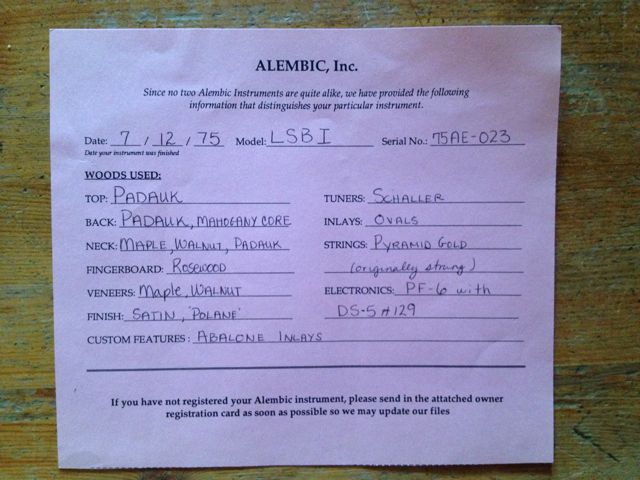 ALEMBIC, Inc.
Since no two Alembic Instruments are quite alike, we have provided the following
information that distinguishes your particular instrument.
Date: 7 / 12 / 75 Model: LSB I Serial No.: 75AE-023
Date your instrument was finished
WOODS USED:
TOP: PADAUK TUNERS: SCHALLER
BACK: PADAUK, MAHOGANY CORE INLAYS: OVALS
NECK: MAPLE, WALNUT, PADAUK STRINGS: PYRAMID GOLD
FINGERBOARD: ROSEWOOD (originally strung)
VENEERS: Maple, WALNUT ELECTRONICS: PF-6 with
FINISH: SATIN, 'POLANE' DS-5 #129
CUSTOM FEATURES : ABALONE INLAYS
If you have not registered your Alembic instrument, please send in the attatched owner
registration card as soon as possible so we may update our files